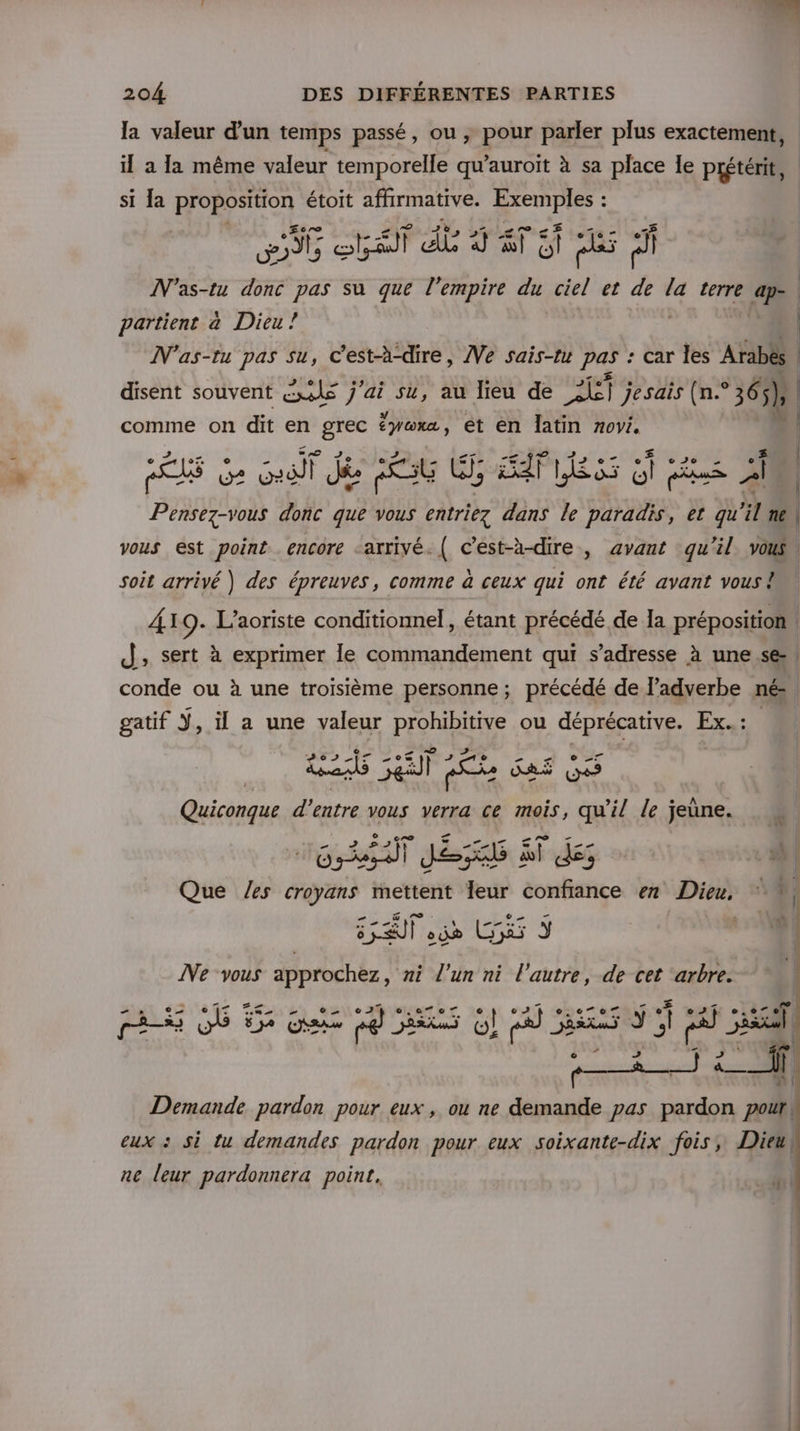 204 DES DIFFÉRENTES PARTIES
la valeur d'un temps passé, ou, pour parler plus exactement,
il a la même valeur temporelle qu'auroit à sa place le prétérit,
si la proposition étoit affirmative. Exemples :
أَلَمْ تَعْلَمْ أَنَّ ٱللَّهَ لَهُ مُلْكُ ٱلسَّمَوَاتِ وَٱلْأَرْضِ
N'as-tu donc pas su que l'empire du ciel et de la terre ap-
partient à Dieu!
N'as-tu pas su, c'est-à-dire, Ne sais-tu pas : car les Arabes
disent souvent عَلِمْتُ j'ai su, au lieu de أَعْلَمُ je sais (n.° 365),
comme on dit en grec ἔγνωκα, et en latin novi.
أَمْ حَسِبْتُمْ أَنْ تَدْخُلُوا ٱلْجَنَّةَ وَلَمَّا يَأْتِكُمْ مَثَلُ ٱلَّذِينَ مِنْ قَبْلِكُمْ
Pensez-vous donc que vous entriez dans le paradis, et qu'il ne
vous est point encore arrivé ( c'est-à-dire, avant qu'il vous
soit arrivé ) des épreuves, comme à ceux qui ont été avant vous!
419. L'aoriste conditionnel, étant précédé de la préposition
لِ, sert à exprimer le commandement qui s'adresse à une se-
conde ou à une troisième personne; précédé de l'adverbe né-
gatif لَا, il a une valeur prohibitive ou déprécative. Ex. :
فَمَنْ شَهِدَ مِنْكُمُ ٱلشَّهْرَ فَلْيَصُمْهُ
Quiconque d'entre vous verra ce mois, qu'il le jeûne.
وَعَلَى ٱللَّهِ فَلْيَتَوَكَّلِ ٱلْمُؤْمِنُونَ
Que les croyans mettent leur confiance en Dieu.
لَا تَقْرَبَا هَذِهِ ٱلشَّجَرَةَ
Ne vous approchez, ni l'un ni l'autre, de cet arbre.
ٱسْتَغْفِرْ لَهُمْ أَوْ لَا تَسْتَغْفِرْ لَهُمْ إِنْ تَسْتَغْفِرْ لَهُمْ سَبْعِينَ مَرَّةً فَلَنْ يَغْفِرَ
ٱللَّهُ لَهُمْ
Demande pardon pour eux, ou ne demande pas pardon pour
eux : si tu demandes pardon pour eux soixante-dix fois, Dieu
ne leur pardonnera point.